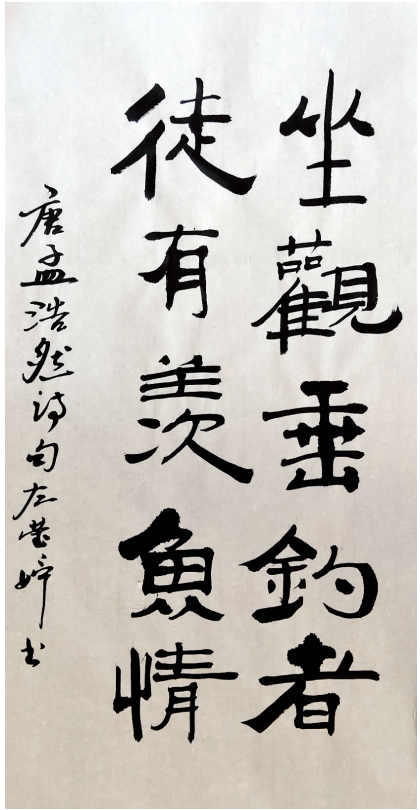 坐觀垂釣者
徒有羨魚情
唐孟浩然詩句左瑩婷書